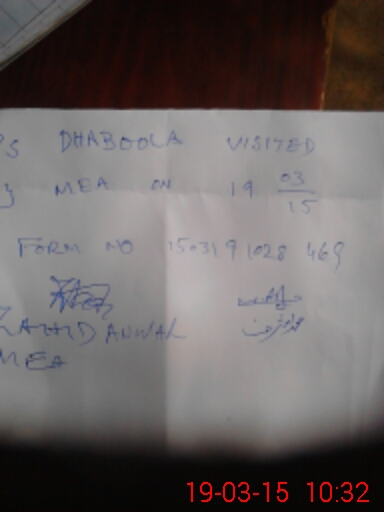 PS DHABOOLA VISITED
MEA ON 19 03
15
FORM NO 1503191028 469
ZAHID ANWAR
MEA
19-03-15 10:32